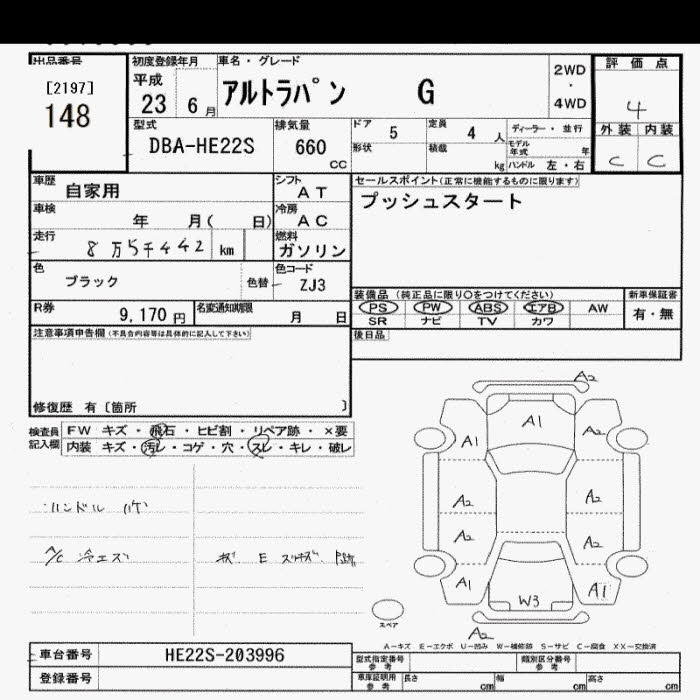 出品番号
[2197]
148
初度登録年月
平成
23 6月
車名・グレード
アルトラパン G
2WD
・
4WD
評価点
4
外装 内装
C C
型式
DBA-HE22S
排気量
660
CC
ドア 5
定員 4 人
ディーラー・並行
形状
積載 kg
モデル年式 年
ハンドル 左・右
車歴 自家用
シフト AT
車検 年 月( 日)
冷房 AC
走行 8万5千442 km
燃料 ガソリン
色 ブラック
色替
色コード ZJ3
R券 9,170円
名変通知期限 月 日
セールスポイント(正常に機能するものに限ります)
プッシュスタート
装備品 (純正品に限り〇をつけてください)
新車保証書
PS PW ABS エアB AW
有・無
SR ナビ TV カワ
後日品
注意事項申告欄(不具合内容等は具体的に記入して下さい)
修復歴 有〔箇所 〕
検査員記入欄
FW キズ・飛石・ヒビ割・リペア跡・×要
内装 キズ・汚レ・コゲ・穴・スレ・キレ・破レ
ハンドル
A/C 冷エズ
A2
A1
A1 A2
A2 A2
A2 A2
A1 A1
W3
A2
スペア
A-キズ E-エクボ U-凹み W-補修跡 S-サビ C-腐食 XX-交換済
車台番号 HE22S-203996
登録番号
型式指定番号 参考
類別区分番号 参考
車庫証明用 参考
長さ cm
幅 cm
高さ cm